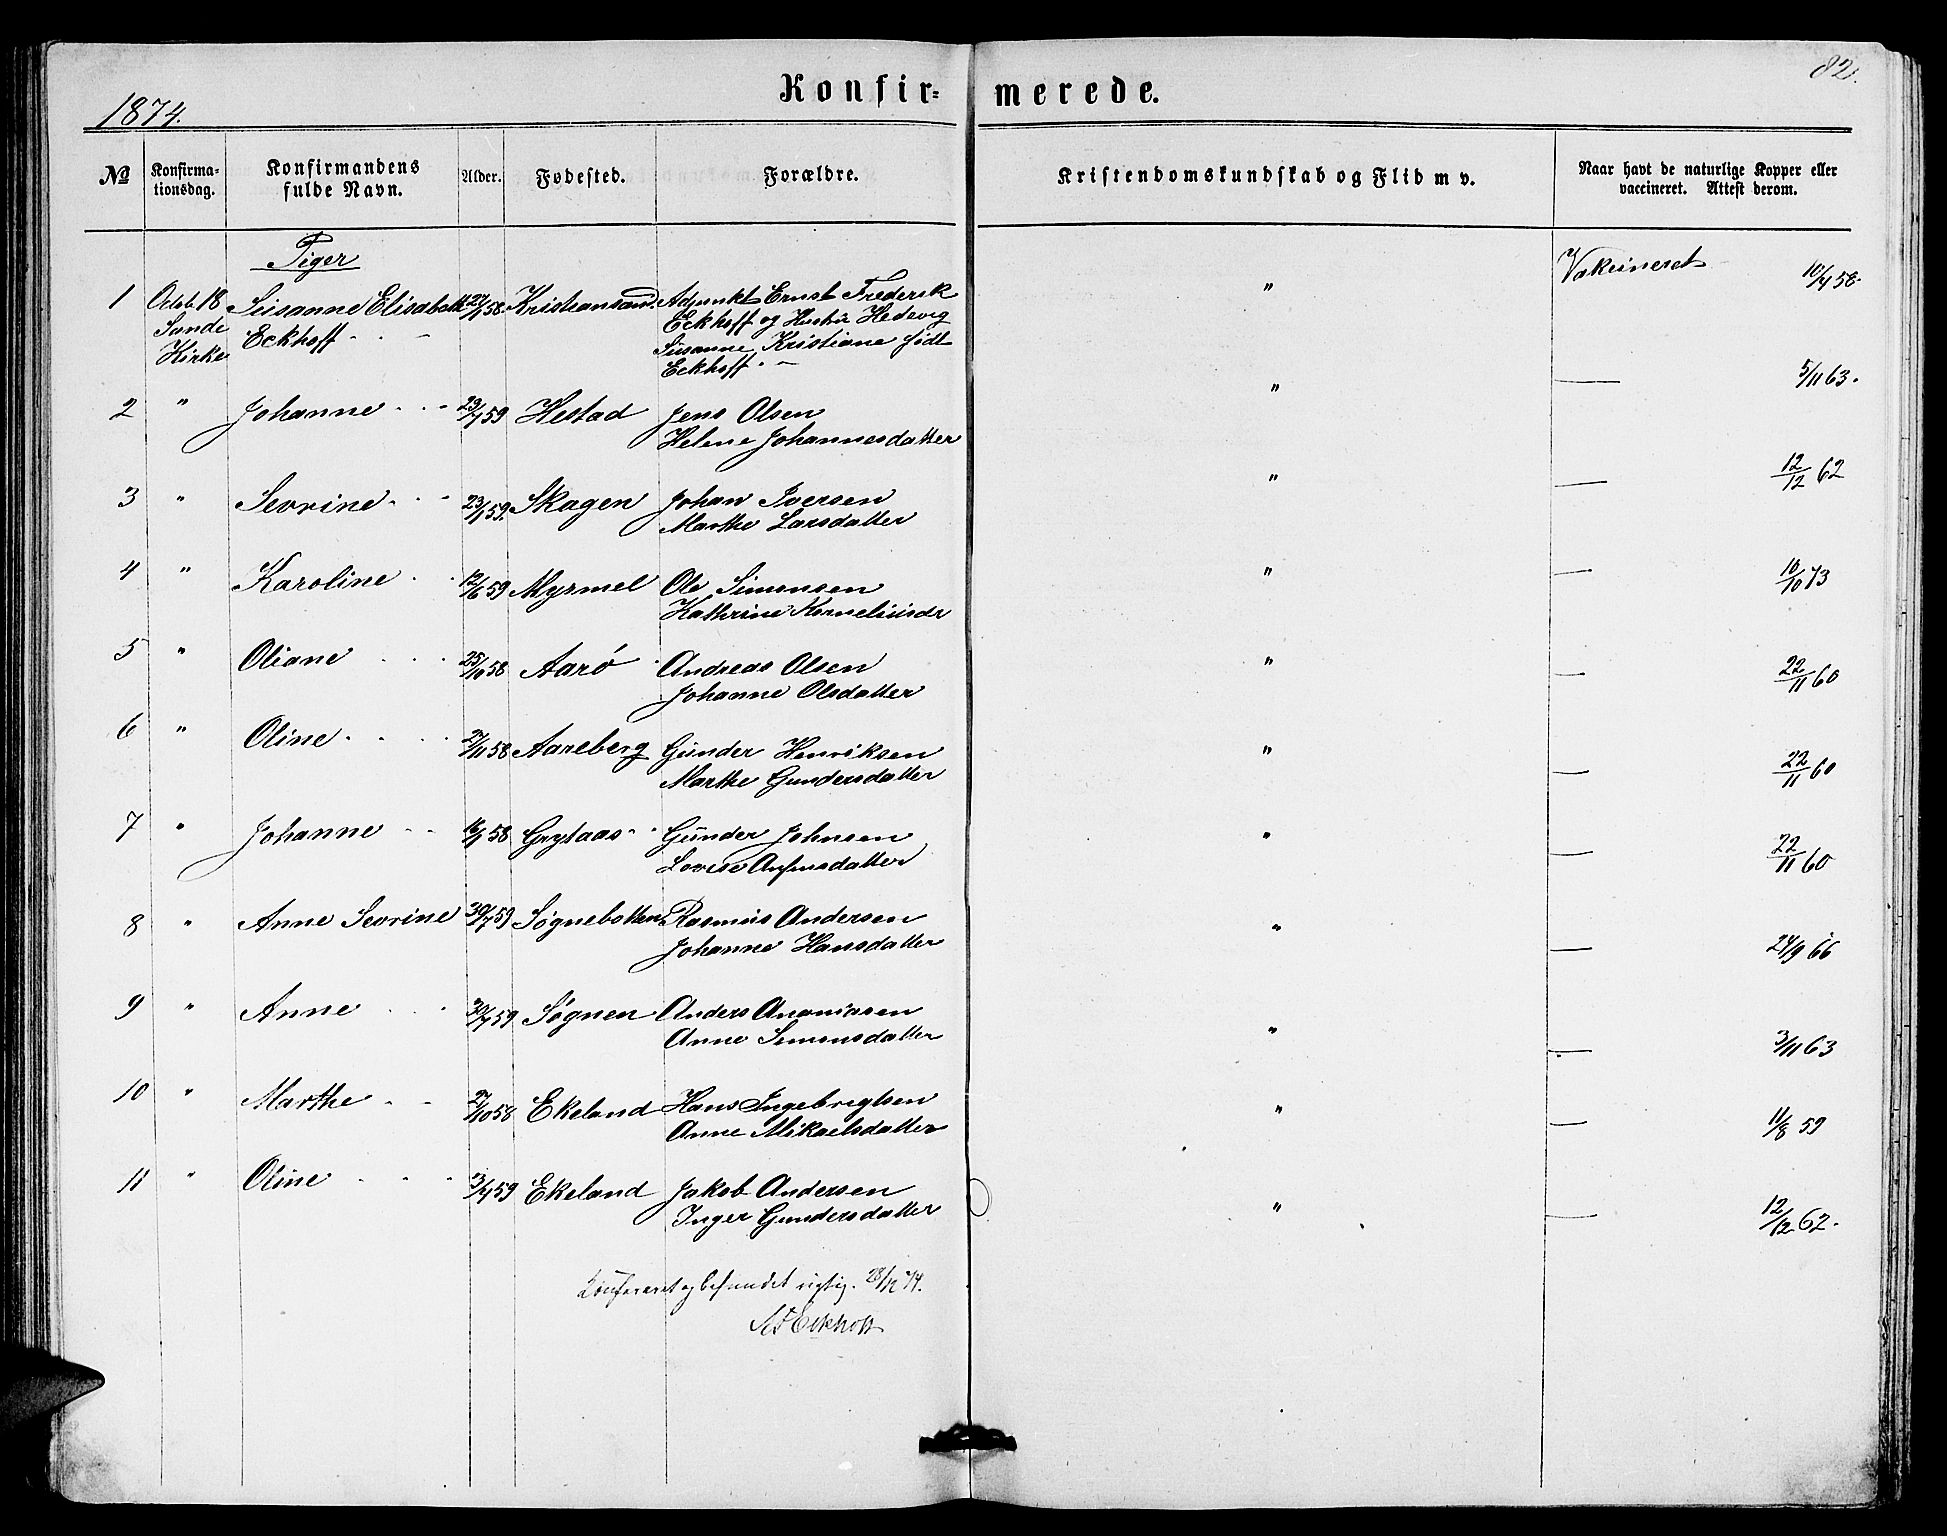 82.
1874.
Konfir= merede.
№ Konfirma-tionsdag. Konfirmandens fulde Navn. Alder. Fødested. Forældre. Kristendomskundskab og Flid m v. Naar havt de naturlige Kopper eller vaccineret. Attest derom.
Piger
1 Octob. 18 Susanne Elisabeth 58. Kristiansand. Adjunkt Ernst Frederik " Vakcineret 58.
Sande Eckhoff - - Eckhoff og Hustru Hedevig
Kirke Susanne Kristiane født
Eckhoff. -
2 " Johanne - - 59 Hestad Jens Olsen " — 5/11 63.
Helene Johannesdatter
3 " Sevrine - - 59. Skagen Johan Iversen " — 12/12 62
Marthe Larsdatter
4 " Karoline - - 12/6 59 Myrmel Ole Simonsen " — 10/10 73
Kathrine Korneliusdr
5 " Oliane - - 25/10 58 Aarø Andreas Olsen " — 22/11 60
Johanne Olsdatter
6 " Oline - - 58 Aareberg Gunder Henriksen " — 22/11 60
Marthe Gundersdatter
7 " Johanne - - 58 Grytaas - - Gunder Johnsen " — 22/11 60
Lovise Anfinsdatter
8 " Anne Sevrine 30/7 59 Søgnebotten Rasmus Andersen " — 24/9 66
Johanne Hansdatter
9 " Anne - - 59 Søgnen Anders Ananiasen " — 3/11 63
Anne Simonsdatter
10 " Marthe - - 58 Ekeland Hans Ingebregtsen " — 11/8 59
Anne Mikaelsdatter
11 " Oline - - - 59 Ekeland Jakob Andersen " — 12/12 62.
Inger Gundersdatter
Konfereret og befundet rigtig. 28/12 74.
Eckhoff